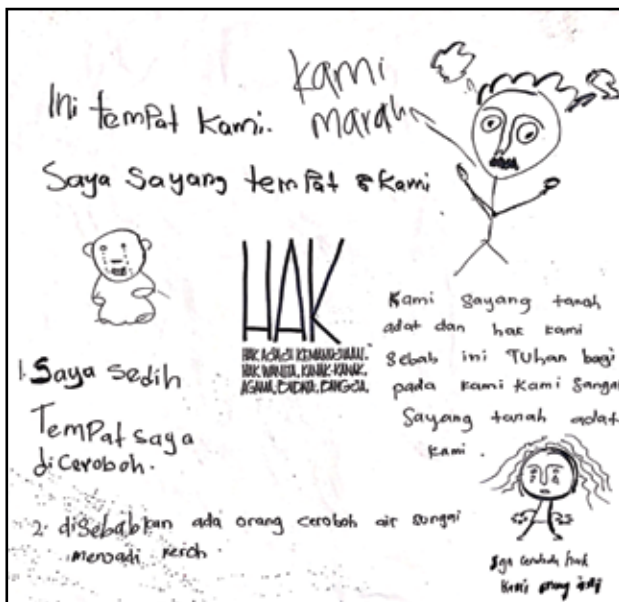 Ini tempat kami.
kami
marah
Saya sayang tempat kami
HAK
HAK ASASI KEMANUSIAAN.
HAK WANITA, KANAK-KANAK,
AGAMA, BUDAYA, BANGSA.
Kami sayang tanah
adat dan hak kami
sebab ini Tuhan bagi
pada kami kami sangat
sayang tanah adat
kami.
1. Saya sedih
Tempat saya
diceroboh.
2. disebabkan ada orang ceroboh air sungai
menjadi keroh.
ceroboh hak
kami orang asli